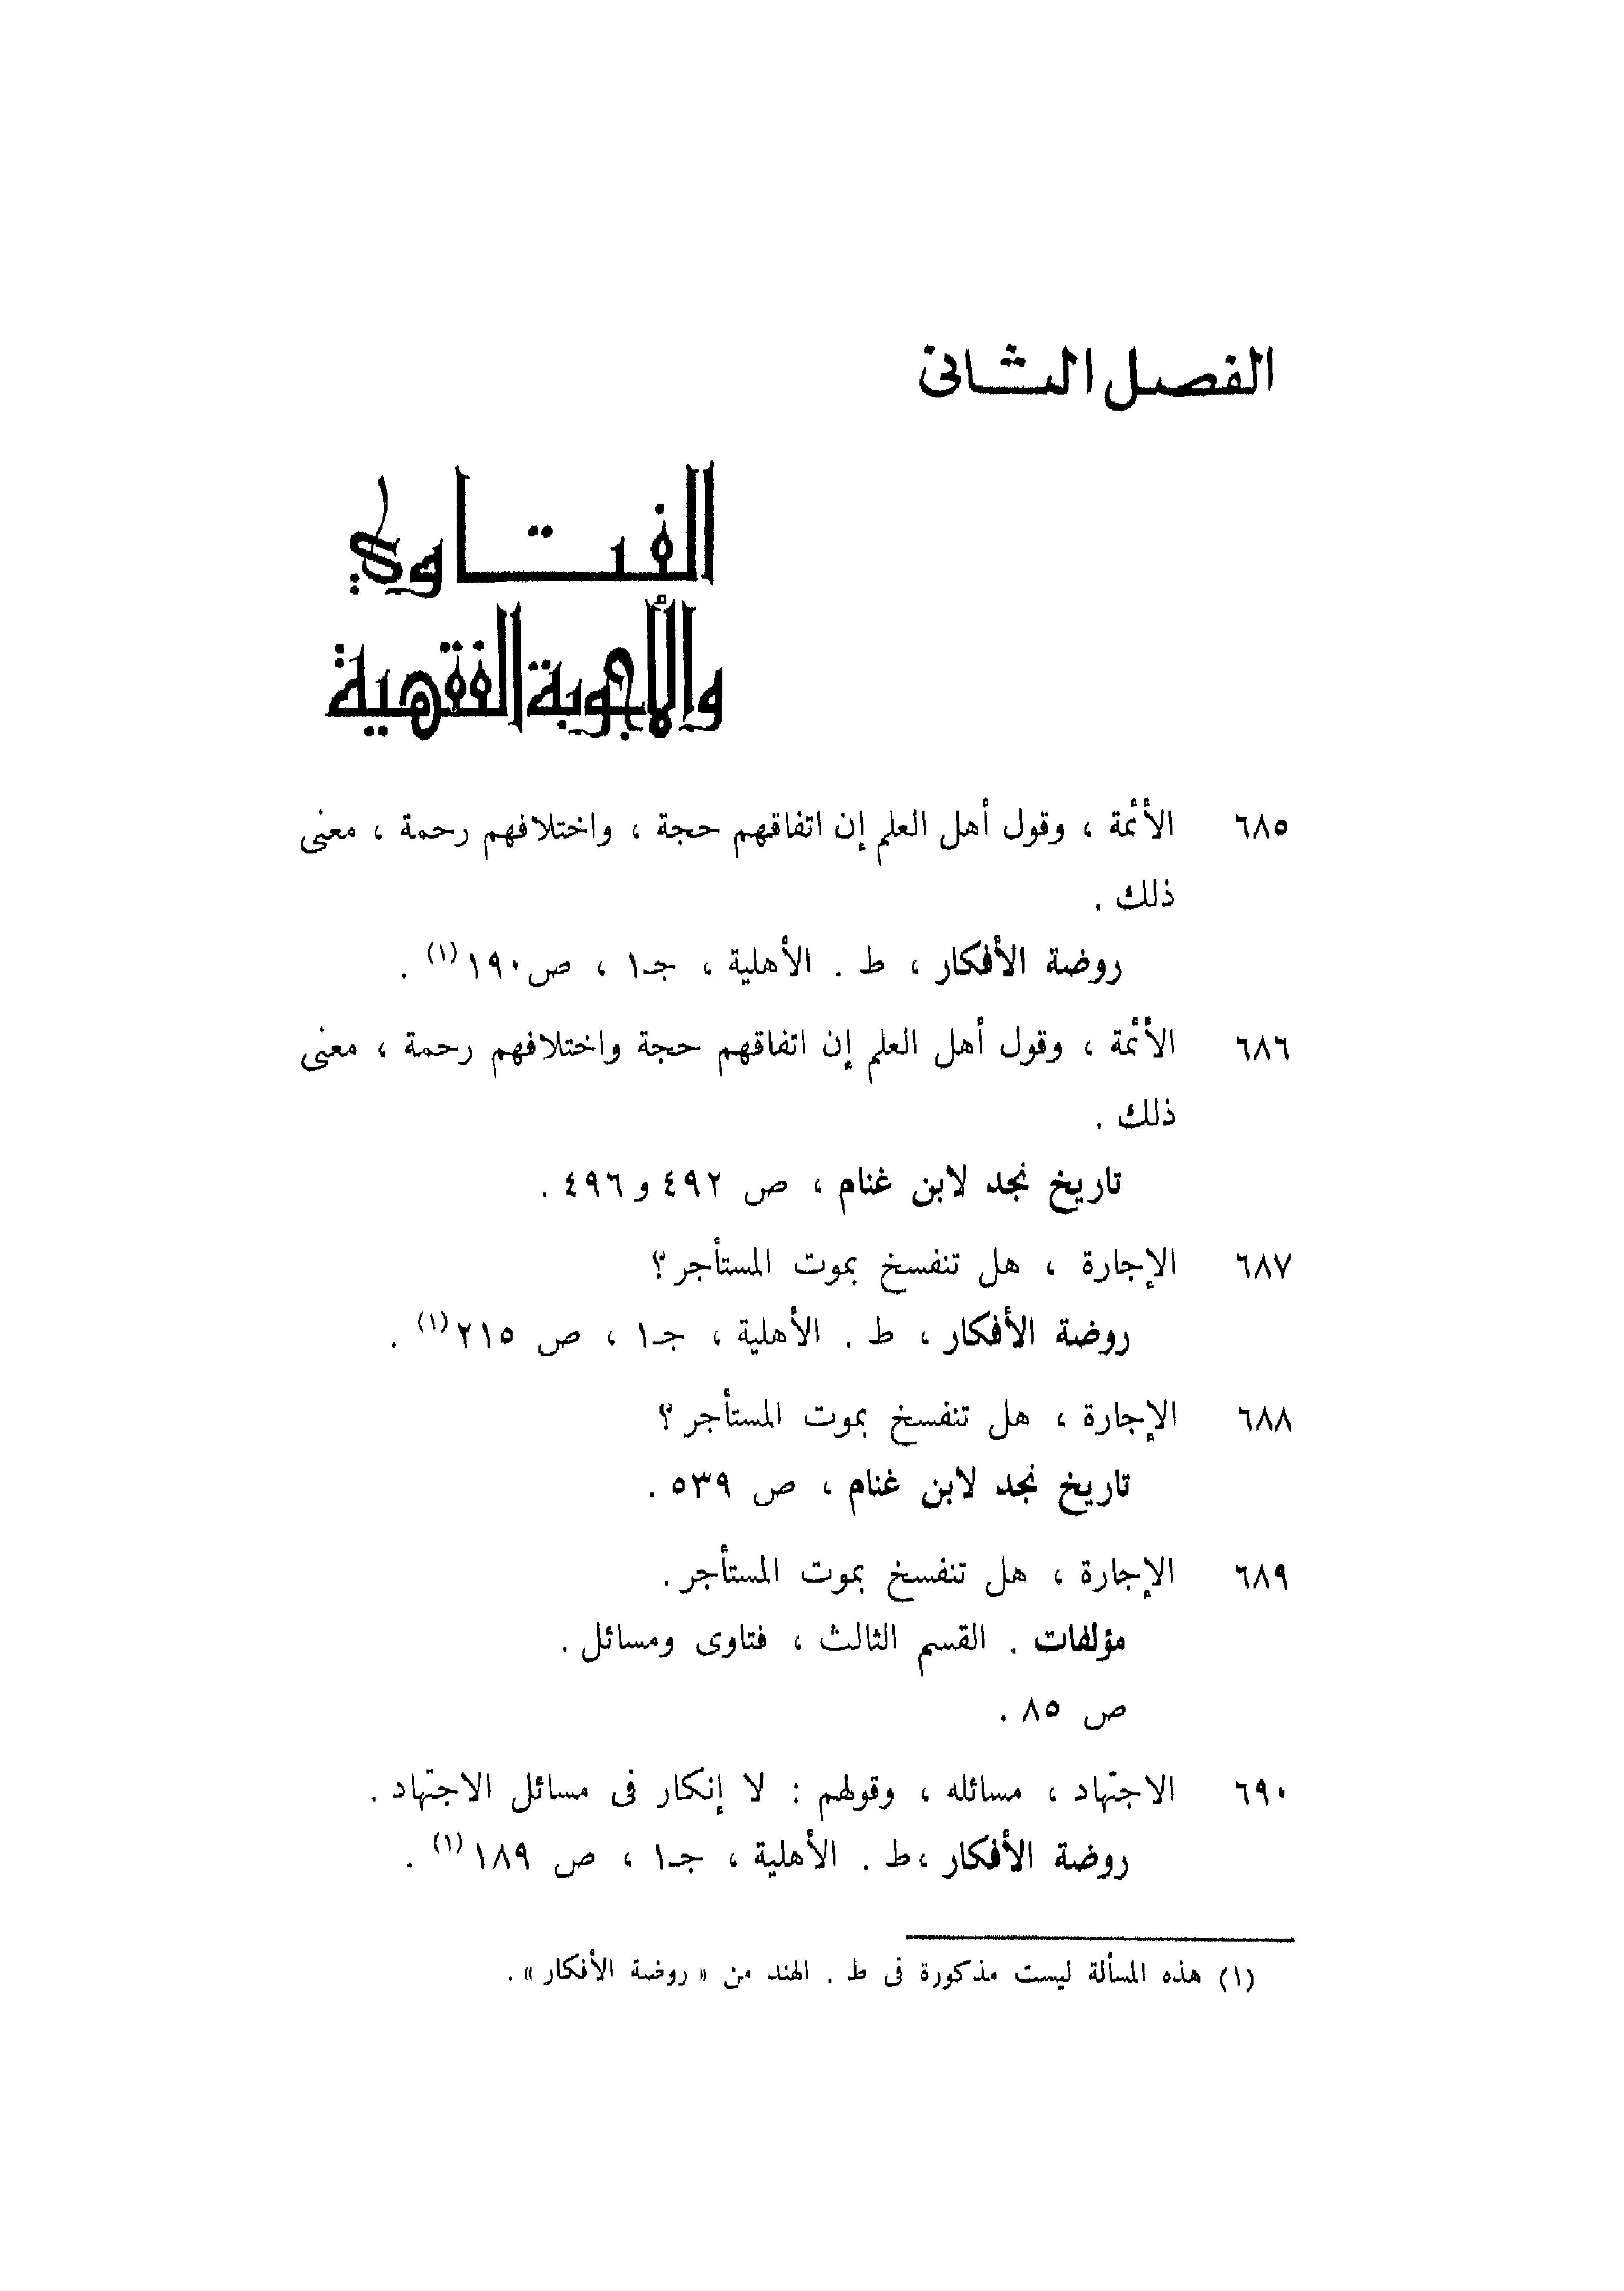 الفصل الثانى
الفتاوي
والأجوبة الفقهية
٦٨٥ الأئمة ، وقول أهل العلم إن اتفاقهم حجة ، واختلافهم رحمة ، معنى
ذلك .
روضة الأفكار ، ط . الأهلية ، جـ١ ، ص١٩٠ (١) .
٦٨٦ الأئمة ، وقول أهل العلم إن اتفاقهم حجة واختلافهم رحمة ، معنى
ذلك .
تاريخ نجد لابن غنام ، ص ٤٩٢ و ٤٩٦ .
٦٨٧ الإجارة ، هل تنفسخ بموت المستأجر ؟
روضة الأفكار ، ط . الأهلية ، جـ١ ، ص ٢١٥ (١) .
٦٨٨ الإجارة ، هل تنفسخ بموت المستأجر ؟
تاريخ نجد لابن غنام ، ص ٥٣٩ .
٦٨٩ الإجارة ، هل تنفسخ بموت المستأجر .
مؤلفات . القسم الثالث ، فتاوى ومسائل .
ص ٨٥ .
٦٩٠ الاجتهاد ، مسائله ، وقولهم : لا إنكار فى مسائل الاجتهاد .
روضة الأفكار ، ط . الأهلية ، جـ١ ، ص ١٨٩ (١) .
(١) هذه المسألة ليست مذكورة فى ط . الهند من « روضة الأفكار » .